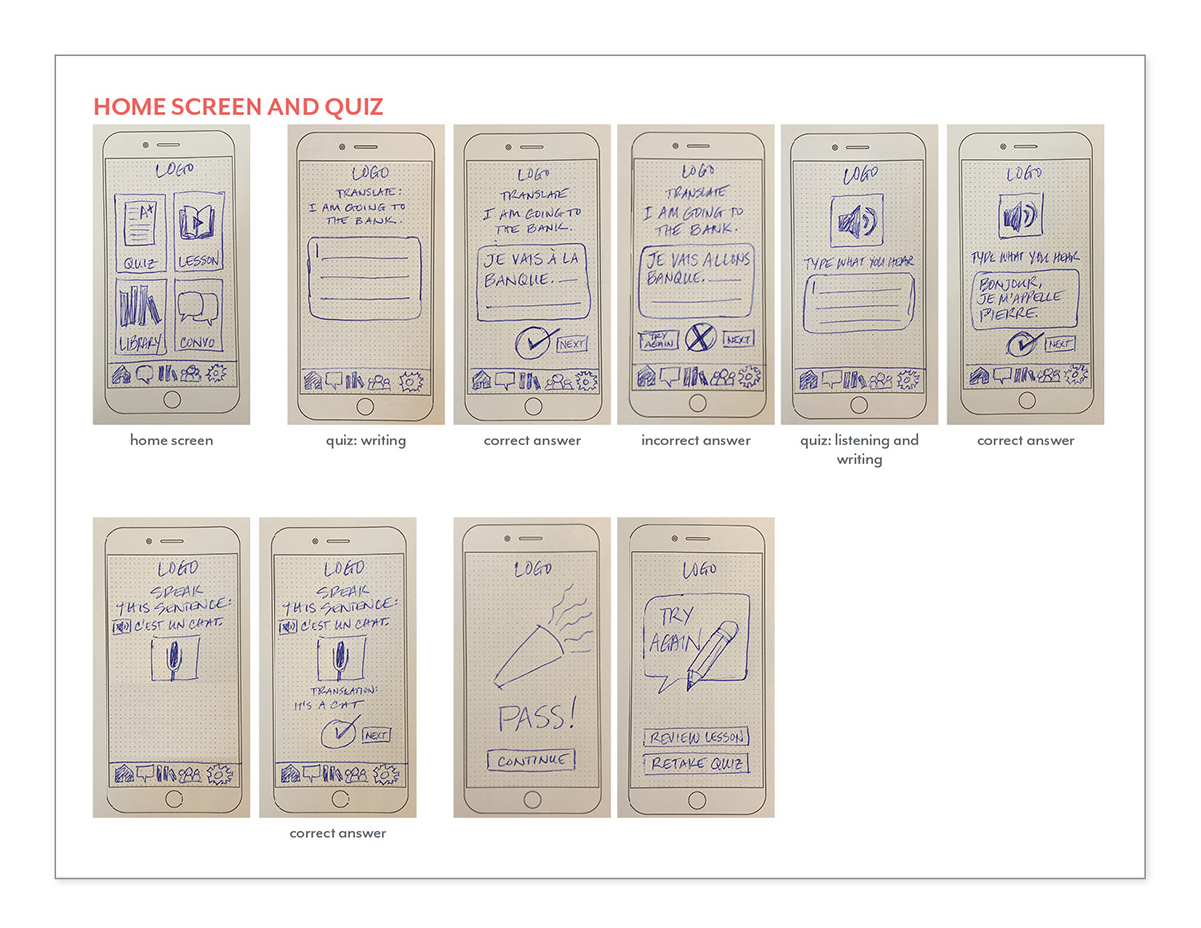 HOME SCREEN AND QUIZ
LOGO
A+
QUIZ
LESSON
LIBRARY
CONVO
home screen
LOGO
TRANSLATE:
I AM GOING TO
THE BANK.
quiz: writing
LOGO
TRANSLATE
I AM GOING TO
THE BANK.
JE VAIS À LA
BANQUE.
NEXT
correct answer
LOGO
TRANSLATE
I AM GOING TO
THE BANK.
JE VAIS ALLONS
BANQUE.
TRY
AGAIN
NEXT
incorrect answer
LOGO
TYPE WHAT YOU HEAR
quiz: listening and
writing
LOGO
TYPE WHAT YOU HEAR
BONJOUR,
JE M'APPELLE
PIERRE.
NEXT
correct answer
LOGO
SPEAK
THIS SENTENCE:
C'EST UN CHAT.
LOGO
SPEAK
THIS SENTENCE:
C'EST UN CHAT.
TRANSLATION:
IT'S A CAT
NEXT
correct answer
LOGO
PASS!
CONTINUE
LOGO
TRY
AGAIN
REVIEW LESSON
RETAKE QUIZ